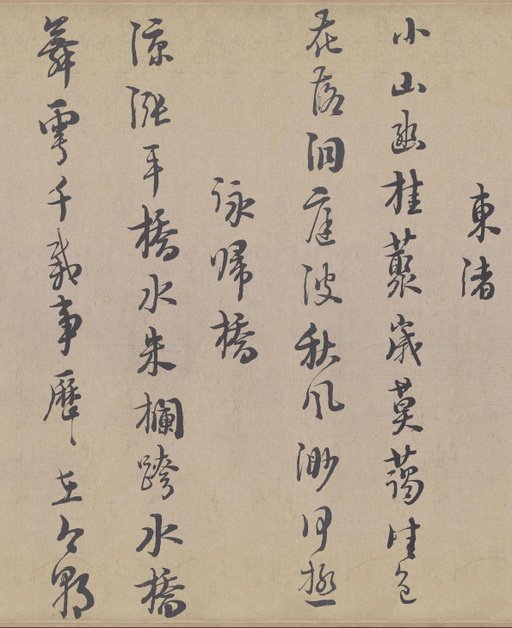 東渚
小山幽桂藂歲莫藹佳色
花落洞庭波秋風渺何極
詠歸橋
涼漲平橋水朱欄跨水橋
舞雩千載事歷歷在今朝